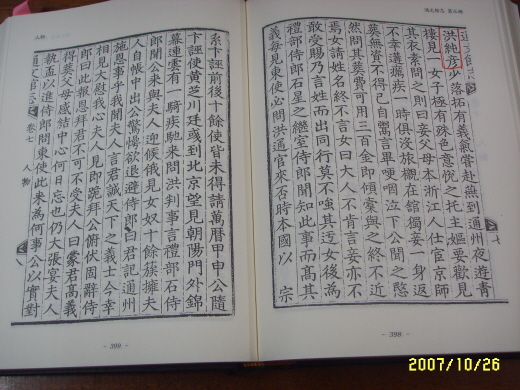 通文館志 第七冊
洪純彦少落拓有義氣嘗赴燕到通州夜遊青
樓見一女子極有殊色意悅之托主嫗要歡見
其衣素問之則曰妾父母本浙江人仕宦京師
不幸遘癘疾一時俱沒旅櫬在館獨妾一身返
葬無資不得已自鬻言畢哽咽泣下公聞之愍
然問其葬費可用三百金即傾橐與之終不近
焉女請姓名終不言女曰大人不肯言妾亦不
敢受賜乃言姓而出同行莫不嗤其迂女後為
禮部侍郎石星之繼室侍郎聞知此事而高其
義每見東使必問洪通官來否時本國以 宗
- 398 -
人物
系卞誣前後十餘使皆未得請萬曆甲申公隨
卞誣使黃芝川廷彧到北京望見朝陽門外錦
幕連雲有一騎疾馳來問洪判事言禮部石侍
郎聞公來與夫人迎候俄見女奴十餘簇擁夫
人自帳中出公驚愕欲退避侍郎曰君記通州
施恩事乎我聞夫人言君誠天下之義士今幸
相見大慰我心夫人見即跪拜公俯伏固辭侍
郎曰此報恩拜君不可不受夫人曰蒙君高義
得葬父母感結中心何日忘也仍大張宴夫人
執盃以進侍郎問東使此來為何事公以實對
通文館志 卷七 人物 八
- 399 -
2007/10/26